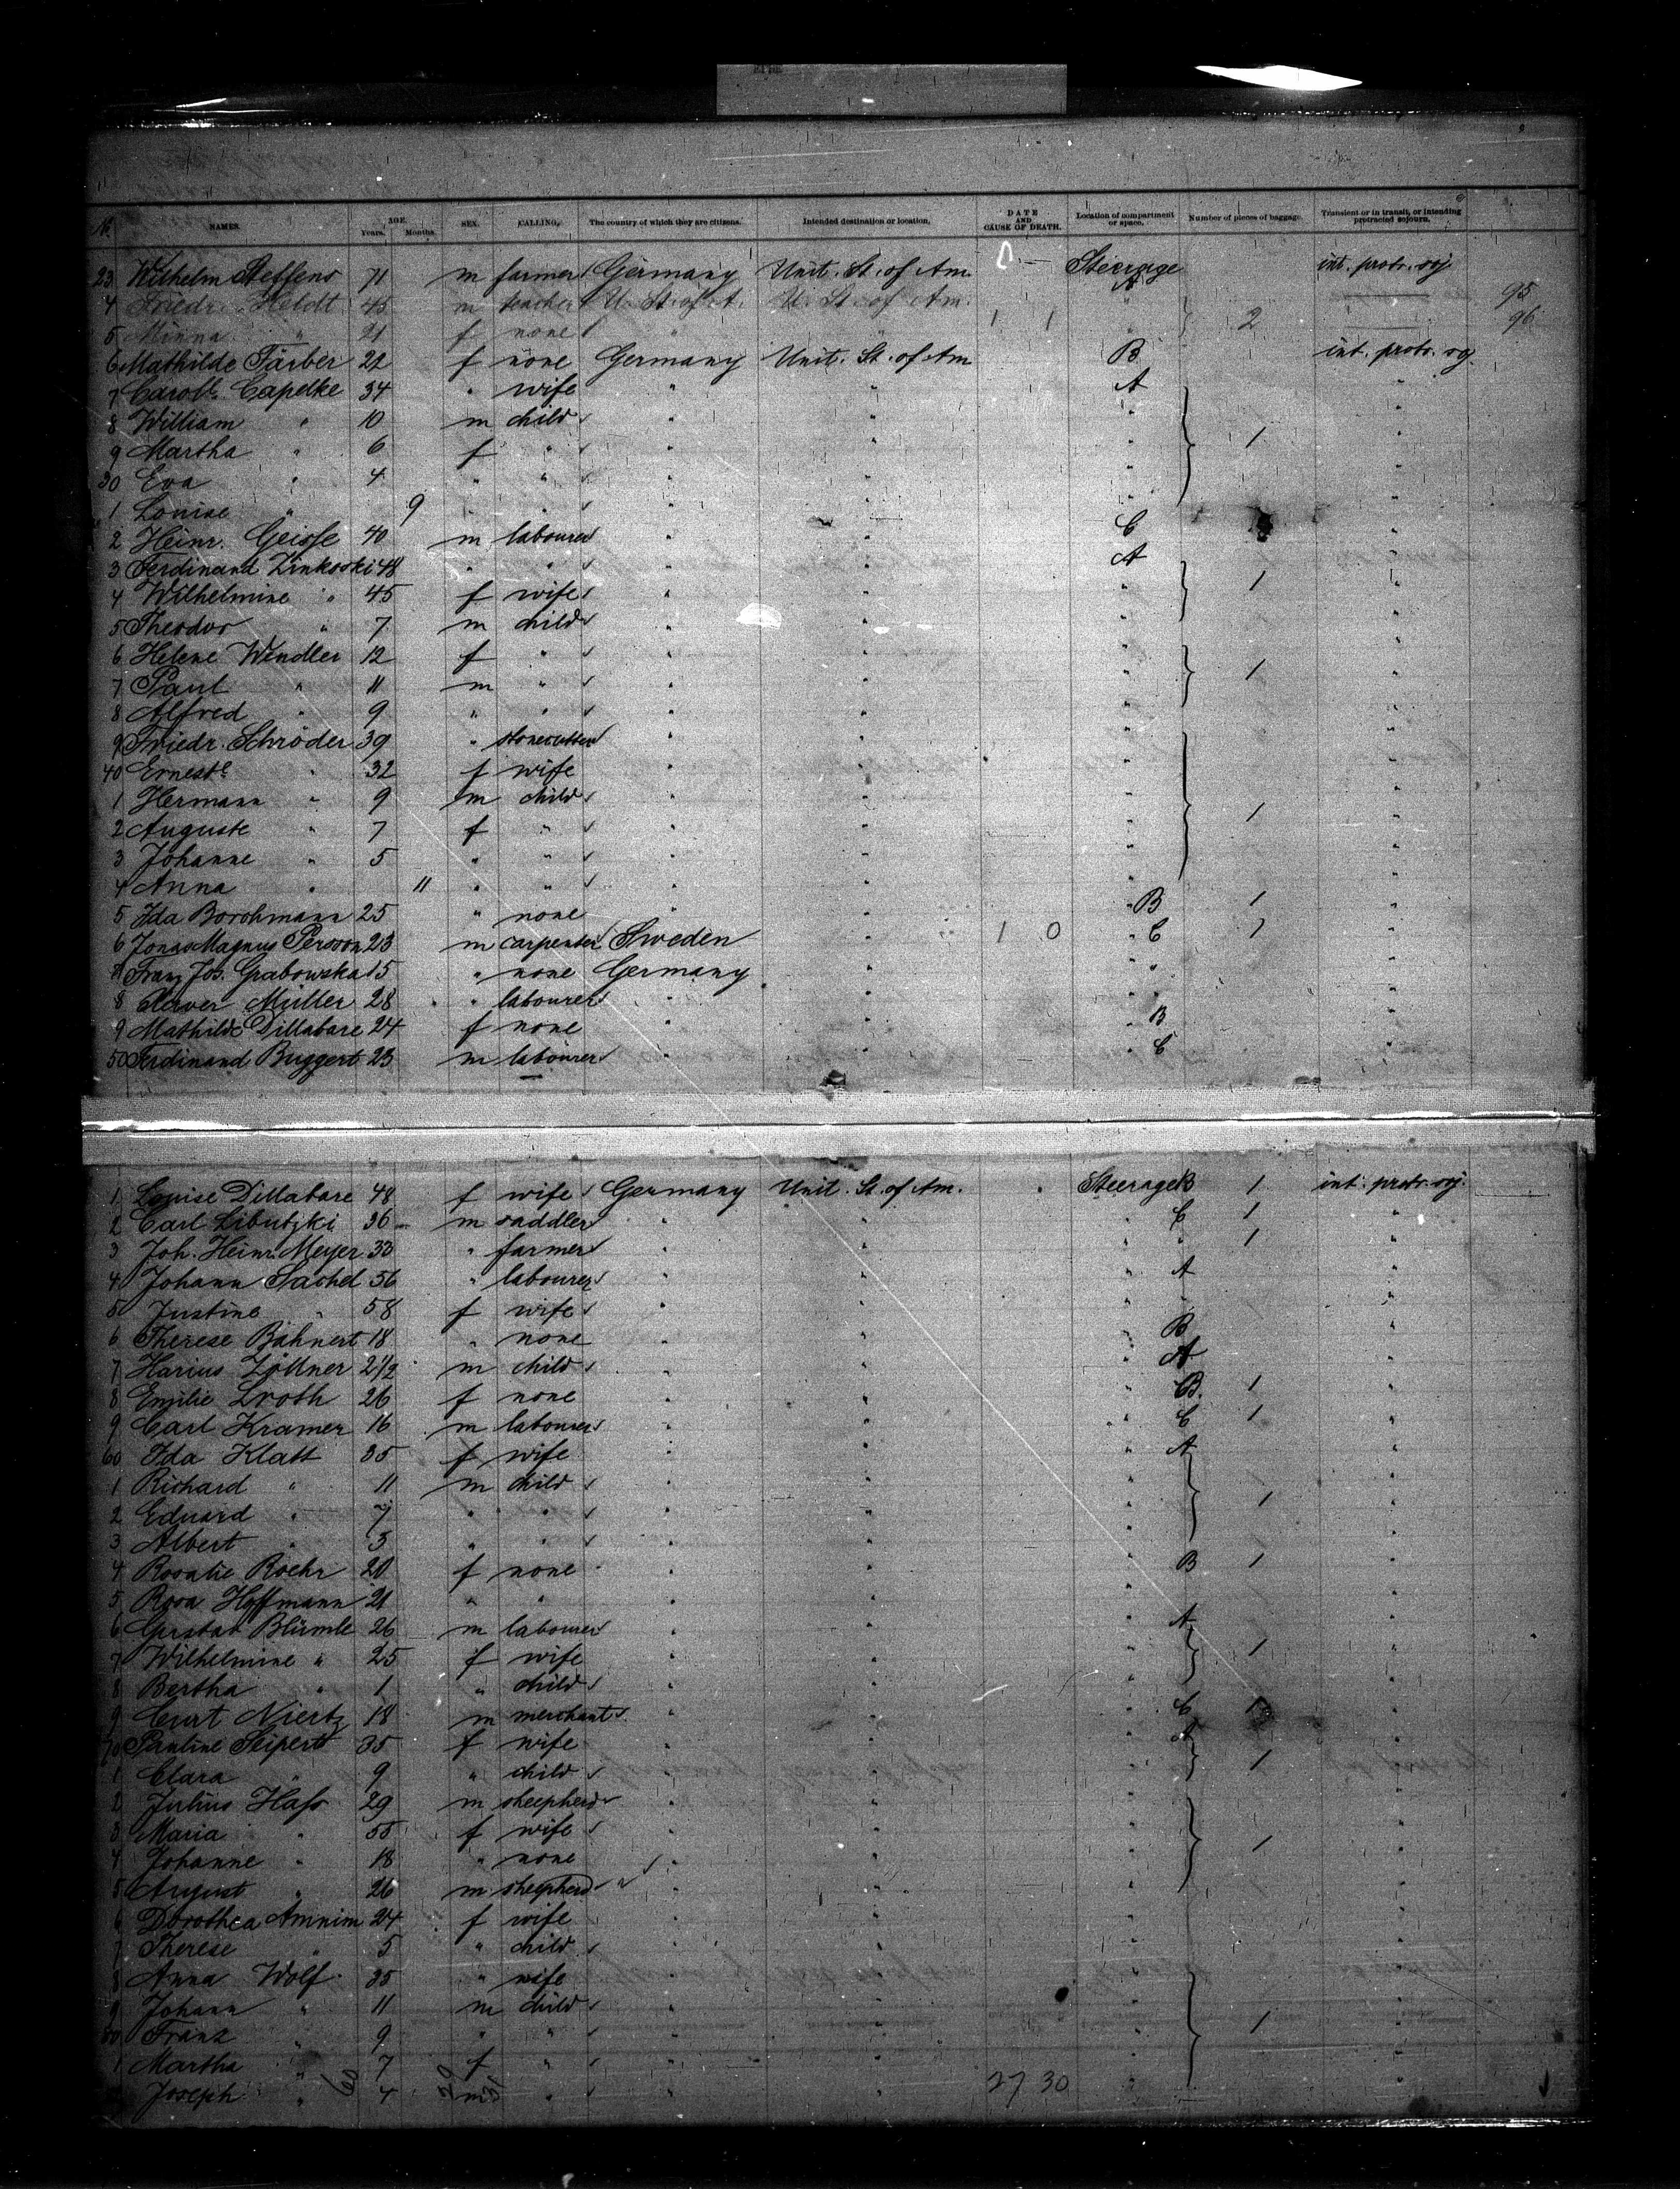 No. NAMES. AGE. Years. Months. SEX. CALLING. The country of which they are citizens. Intended destination or location. DATE AND CAUSE OF DEATH. Location of compartment or space. Number of pieces of baggage. Transient or in transit, or intending protracted sojourn.
23 Wilhelm Steffens 71 m farmer Germany Unit. St. of Am. Steerage A int. protr. soj
4 Friedr. Heldt 45 m teacher U. St. of A. U. St. of Am. " 95
5 Minna " 21 f none " " 1 1 " 2 96
6 Mathilde Färber 22 f none Germany Unit. St. of Am B int. protr. soj.
7 Carole Capelke 34 " wife " " A "
8 William " 10 m child " " " "
9 Martha " 6 f " " " " 1 "
30 Eva " 4 " " " " " "
1 Louise " 9 " " " " " "
2 Heinr. Geisse 40 m labourer " " C "
3 Ferdinand Zinkoski 48 " " " " A "
4 Wilhelmine " 45 f wife " " " 1 "
5 Theodor " 7 m child " " " "
6 Helene Wendler 12 f " " " " "
7 Paul " 11 m " " " " 1 "
8 Alfred " 9 " " " " " "
9 Friedr. Schröder 39 " stonecutter " " " "
40 Erneste " 32 f wife " " " "
1 Hermann " 9 m child " " " "
2 Auguste " 7 f " " " " 1 "
3 Johanne " 5 " " " " " "
4 Anna " 11 " " " " " "
5 Ida Borchmann 25 " none " " " B 1 "
6 Jonas Magnus Persson 23 m carpenter Sweden " 1 0 " C 1 "
7 Franz Jos. Grabowska 15 " none Germany " " " "
8 Müller 28 " labourer " " " " "
9 Mathilde Dillabare 24 f none " " " B "
50 Ferdinand Buggert 23 m labourer " " " C "
1 Louise Dillabare 48 f wife Germany Unit. St. of Am. Steerage B 1 int. protr. soj.
2 Carl Libutzki 36 m saddler " " " C 1 "
3 Joh. Heinr. Meyer 33 " farmer " " " " 1 "
4 Johann Sachel 56 " labourer " " " A "
5 Justine " 58 f wife " " " " "
6 Therese Bähnert 18 " none " " " B "
7 Harius Zöllner 2 1/2 m child " " " A "
8 Emilie Lroth 26 f none " " " B. 1 "
9 Carl Kramer 16 m labourer " " " C 1 "
60 Ida Klatt 35 f wife " " " A "
1 Richard " 11 m child " " " "
2 Eduard " 7 " " " " " 1 "
3 Albert " 3 " " " " " "
4 Rosalie Roehr 20 f none " " " B 1 "
5 Rosa Hoffmann 21 " " " " " "
6 Gustav Blümle 26 m labourer " " " A "
7 Wilhelmine " 25 f wife " " " 1 "
8 Bertha " 1 " child " " " "
9 Curt Niertz 18 m merchant " " " C 1 "
70 Pauline Seipert 35 f wife " " " A "
1 Clara " 9 " child " " " 1 "
2 Julius Hass 29 m sheepherd " " " "
3 Maria " 55 f wife " " " "
4 Johanne " 18 " none " " " 1 "
5 August " 26 m sheepherd " " " "
6 Dorothea Amnim 24 f wife " " " "
7 Therese " 5 " child " " " "
8 Anna Wolf 35 " wife " " " "
9 Johann " 11 m child " " " "
80 Franz " 9 " " " " " 1 "
1 Martha " 7 f " " " " "
Joseph " 4 m " " " 27 30 " "